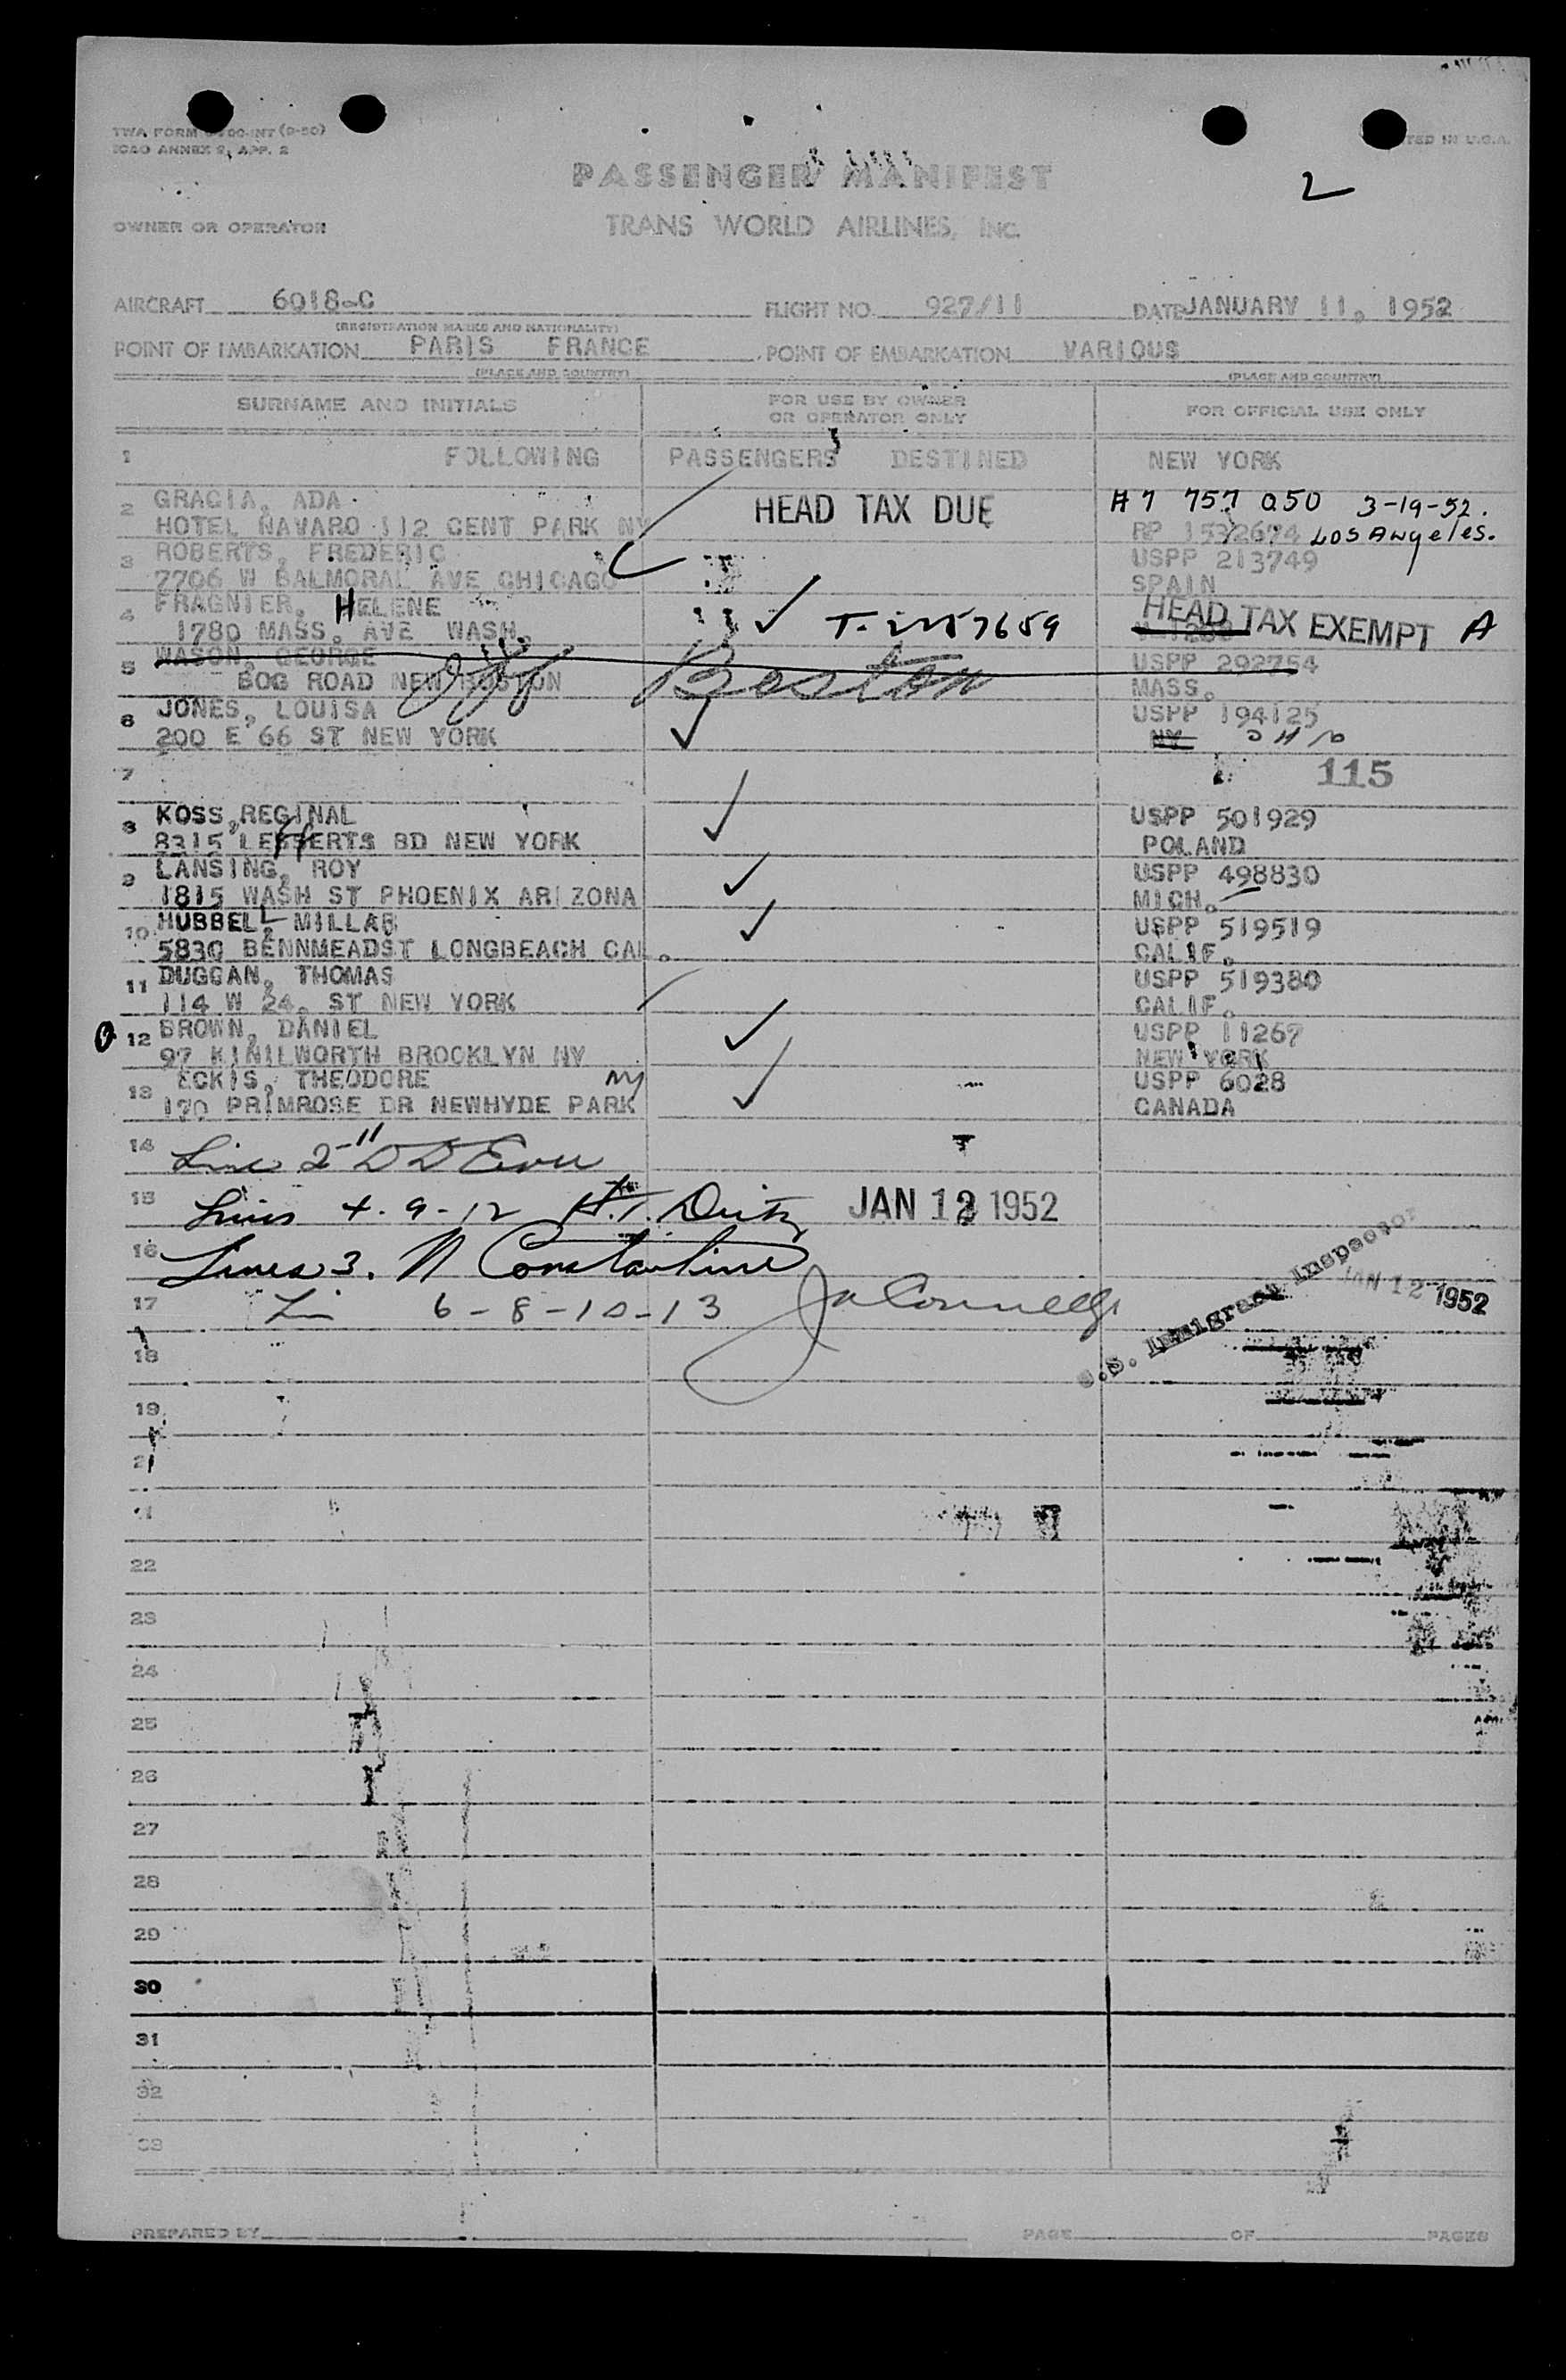 TWA FORM (9-50)
ICAO ANNEX 9, APP. 2
PRINTED IN U.S.A.
PASSENGER MANIFEST
2
OWNER OR OPERATOR TRANS WORLD AIRLINES, INC.
AIRCRAFT 6018-C FLIGHT NO. 927/11 DATE JANUARY 11, 1952
(REGISTRATION MARKS AND NATIONALITY)
POINT OF EMBARKATION PARIS FRANCE POINT OF EMBARKATION VARIOUS
(PLACE AND COUNTRY) (PLACE AND COUNTRY)
SURNAME AND INITIALS FOR USE BY OWNER OR OPERATOR ONLY FOR OFFICIAL USE ONLY
1 FOLLOWING PASSENGERS DESTINED NEW YORK
2 GRACIA, ADA HEAD TAX DUE A7 757 050 3-19-52.
HOTEL NAVARO 112 CENT PARK NY RP 1532674 Los Angeles.
3 ROBERTS, FREDERIC USPP 213749
7706 W BALMORAL AVE CHICAGO SPAIN
4 FRAGNIER, HELENE HEAD TAX EXEMPT A
1780 MASS. AVE WASH. T-2257659
5 WASON, GEORGE USPP 292754
BOG ROAD NEW BOSTON Off Boston MASS.
6 JONES, LOUISA USPP 194125
200 E 66 ST NEW YORK NY OHIO
7 115
8 KOSS, REGINAL USPP 501929
8315 LEFFERTS BD NEW YORK POLAND
9 LANSING, ROY USPP 498830
1815 WASH ST PHOENIX ARIZONA MICH.
10 HUBBELL, MILLAR USPP 519519
5830 BENNMEADST LONGBEACH CAL. CALIF.
11 DUGGAN, THOMAS USPP 519380
114 W 24. ST NEW YORK CALIF.
12 BROWN, DANIEL USPP 11267
97 KINILWORTH BROOKLYN NY NEW YORK
13 ECKIS, THEODORE NY USPP 6028
170 PRIMROSE DR NEWHYDE PARK CANADA
14 Line 2-11
15 Lines 4-9-12 JAN 12 1952
16 Lines 3. N Constantine
U.S. Immigrant Inspector
JAN 12 1952
17 Lin 6-8-10-13
18
19
21
22
23
24
25
26
27
28
29
30
31
32
33
PREPARED BY PAGE OF PAGES